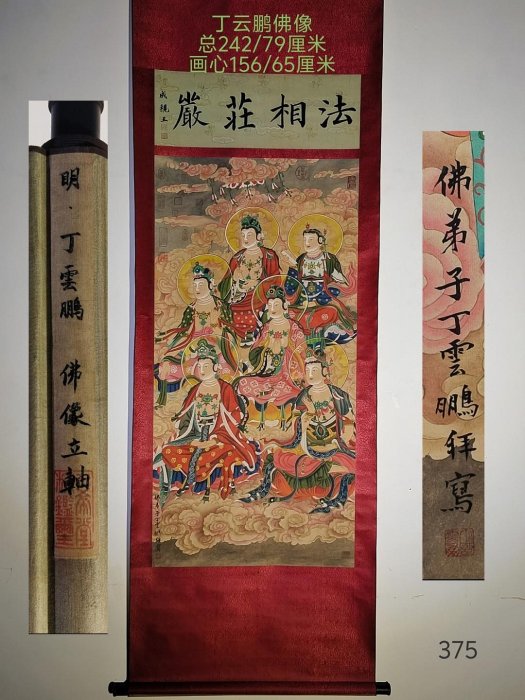 丁云鹏佛像
总242/79厘米
画心156/65厘米
法相莊嚴
成親王
明·丁雲鵬 佛像立軸
佛弟子丁雲鵬拜寫
375